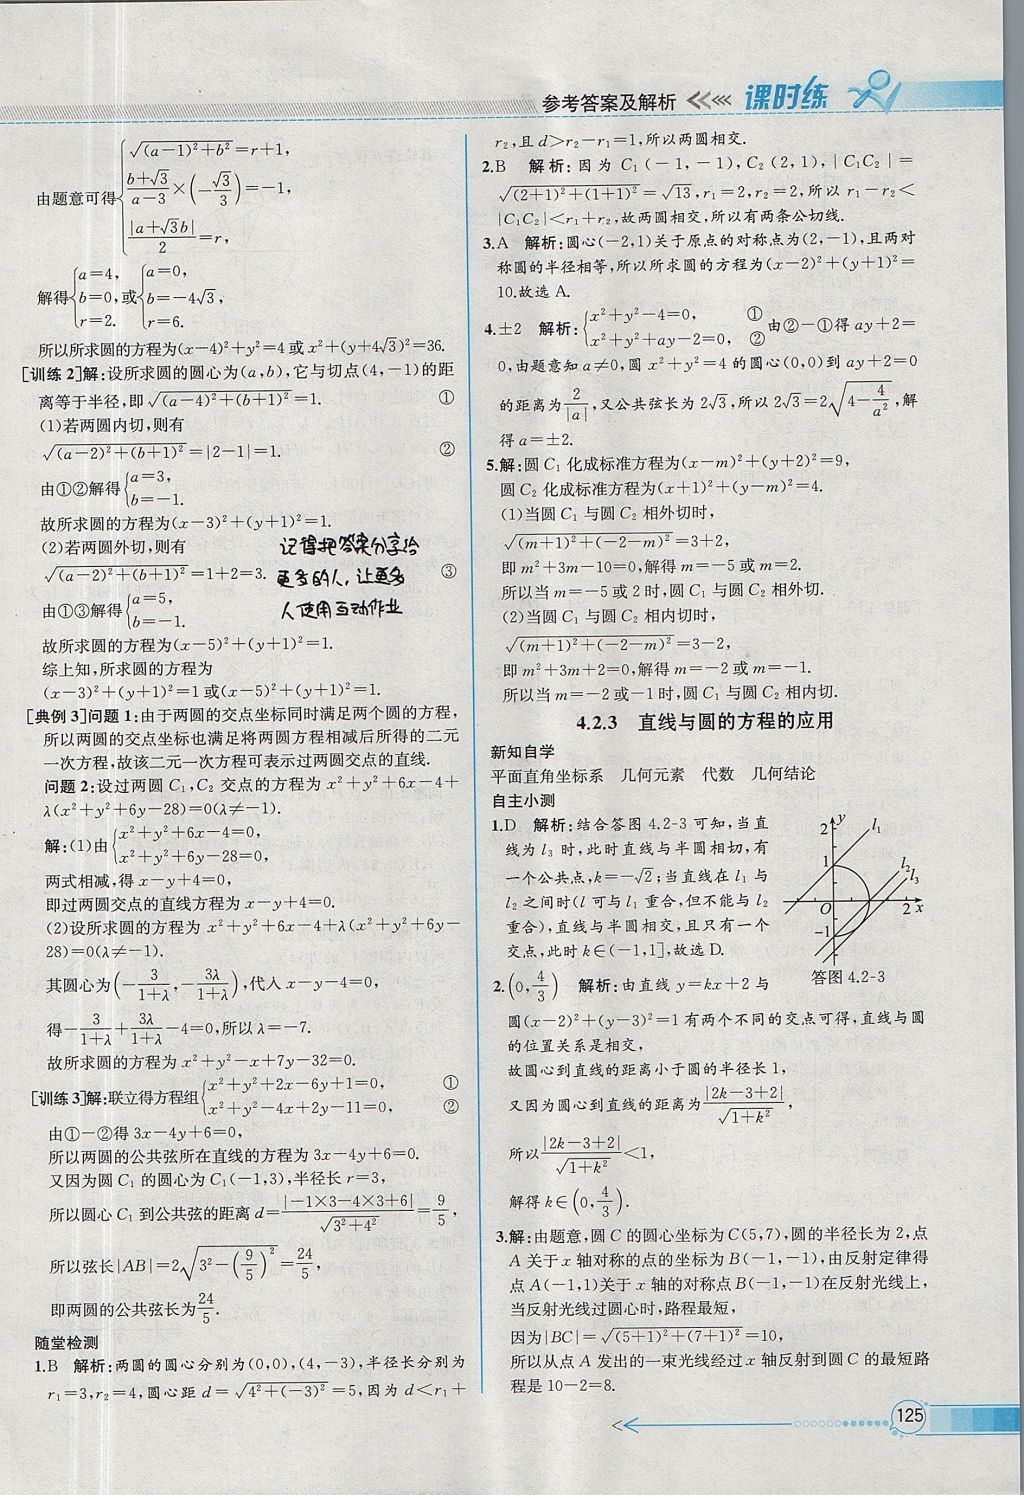 参考答案及解析 课时练
由题意可得{√((a-1)²+b²)=r+1,
(b+√3)/(a-3)×(-√3/3)=-1,
|a+√3b|/2=r,
解得{a=4, b=0, r=2. 或{a=0, b=-4√3, r=6.
所以所求圆的方程为(x-4)²+y²=4或x²+(y+4√3)²=36.
[训练2]解:设所求圆的圆心为(a,b),它与切点(4,-1)的距
离等于半径,即√((a-4)²+(b+1)²)=1. ①
(1)若两圆内切,则有
√((a-2)²+(b+1)²)=|2-1|=1. ②
由①②解得{a=3, b=-1.
故所求圆的方程为(x-3)²+(y+1)²=1.
(2)若两圆外切,则有
√((a-2)²+(b+1)²)=1+2=3. ③
由①③解得{a=5, b=-1.
记得把答案分享给
更多的人,让更多
人使用互动作业
故所求圆的方程为(x-5)²+(y+1)²=1.
综上知,所求圆的方程为
(x-3)²+(y+1)²=1或(x-5)²+(y+1)²=1.
[典例3]问题1:由于两圆的交点坐标同时满足两个圆的方程,
所以两圆的交点坐标也满足将两圆方程相减后所得的二元
一次方程,故该二元一次方程可表示过两圆交点的直线.
问题2:设过两圆C₁,C₂交点的方程为x²+y²+6x-4+
λ(x²+y²+6y-28)=0(λ≠-1).
解:(1)由{x²+y²+6x-4=0,
x²+y²+6y-28=0,
两式相减,得x-y+4=0,
即过两圆交点的直线方程为x-y+4=0.
(2)设所求圆的方程为x²+y²+6x-4+λ(x²+y²+6y-
28)=0(λ≠-1).
其圆心为(-3/(1+λ),-3λ/(1+λ)),代入x-y-4=0,
得-3/(1+λ)+3λ/(1+λ)-4=0,所以λ=-7.
故所求圆的方程为x²+y²-x+7y-32=0.
[训练3]解:联立得方程组{x²+y²+2x-6y+1=0, ①
x²+y²-4x+2y-11=0, ②
由①-②得3x-4y+6=0,
所以两圆的公共弦所在直线的方程为3x-4y+6=0.
又因为圆C₁的圆心为C₁(-1,3),半径长r=3,
所以圆心C₁到公共弦的距离d=|-1×3-4×3+6|/√(3²+4²)=9/5,
所以弦长|AB|=2√(3²-(9/5)²)=24/5,
即两圆的公共弦长为24/5.
随堂检测
1.B 解析:两圆的圆心分别为(0,0),(4,-3),半径长分别为
r₁=3,r₂=4,圆心距d=√(4²+(-3)²)=5,因为d<r₁+
r₂,且d>r₂-r₁=1,所以两圆相交.
2.B 解析:因为C₁(-1,-1),C₂(2,1),|C₁C₂|=
√((2+1)²+(1+1)²)=√13,r₁=2,r₂=2,所以r₁-r₂<
|C₁C₂|<r₁+r₂,故两圆相交,所以有两条公切线.
3.A 解析:圆心(-2,1)关于原点的对称点为(2,-1),且两对
称圆的半径相等,所以所求圆的方程为(x-2)²+(y+1)²=
10.故选A.
4.±2 解析:{x²+y²-4=0, ①
x²+y²+ay-2=0, ② 由②-①得ay+2=
0,由题意知a≠0,圆x²+y²=4的圆心(0,0)到ay+2=0
的距离为2/|a|,又公共弦长为2√3,所以2√3=2√(4-4/a²),解
得a=±2.
5.解:圆C₁化成标准方程为(x-m)²+(y+2)²=9,
圆C₂化成标准方程为(x+1)²+(y-m)²=4.
(1)当圆C₁与圆C₂相外切时,
√((m+1)²+(-2-m)²)=3+2,
即m²+3m-10=0,解得m=-5或m=2.
所以当m=-5或2时,圆C₁与圆C₂相外切.
(2)当圆C₁与圆C₂相内切时,
√((m+1)²+(-2-m)²)=3-2,
即m²+3m+2=0,解得m=-2或m=-1.
所以当m=-2或-1时,圆C₁与圆C₂相内切.
4.2.3 直线与圆的方程的应用
新知自学
平面直角坐标系 几何元素 代数 几何结论
自主小测
1.D 解析:结合答图4.2-3可知,当直
线为l₃时,此时直线与半圆相切,有
一个公共点,k=-√2;当直线在l₁与
l₂之间时(l可与l₁重合,但不能与l₂
重合),直线与半圆相交,且只有一个
交点,此时k∈(-1,1],故选D.
y
2
l₁
1
l₂
l₃
O
2 x
-1
答图4.2-3
2.(0,4/3) 解析:由直线y=kx+2与
圆(x-2)²+(y-3)²=1有两个不同的交点可得,直线与圆
的位置关系是相交,
故圆心到直线的距离小于圆的半径长1,
又因为圆心到直线的距离为|2k-3+2|/√(1+k²),
所以|2k-3+2|/√(1+k²)<1,
解得k∈(0,4/3).
3.解:由题意,圆C的圆心坐标为C(5,7),圆的半径长为2,点
A关于x轴对称的点的坐标为B(-1,-1),由反射定律得
点A(-1,1)关于x轴的对称点B(-1,-1)在反射光线上,
当反射光线过圆心时,路程最短,
因为|BC|=√((5+1)²+(7+1)²)=10,
所以从点A发出的一束光线经过x轴反射到圆C的最短路
程是10-2=8.
125